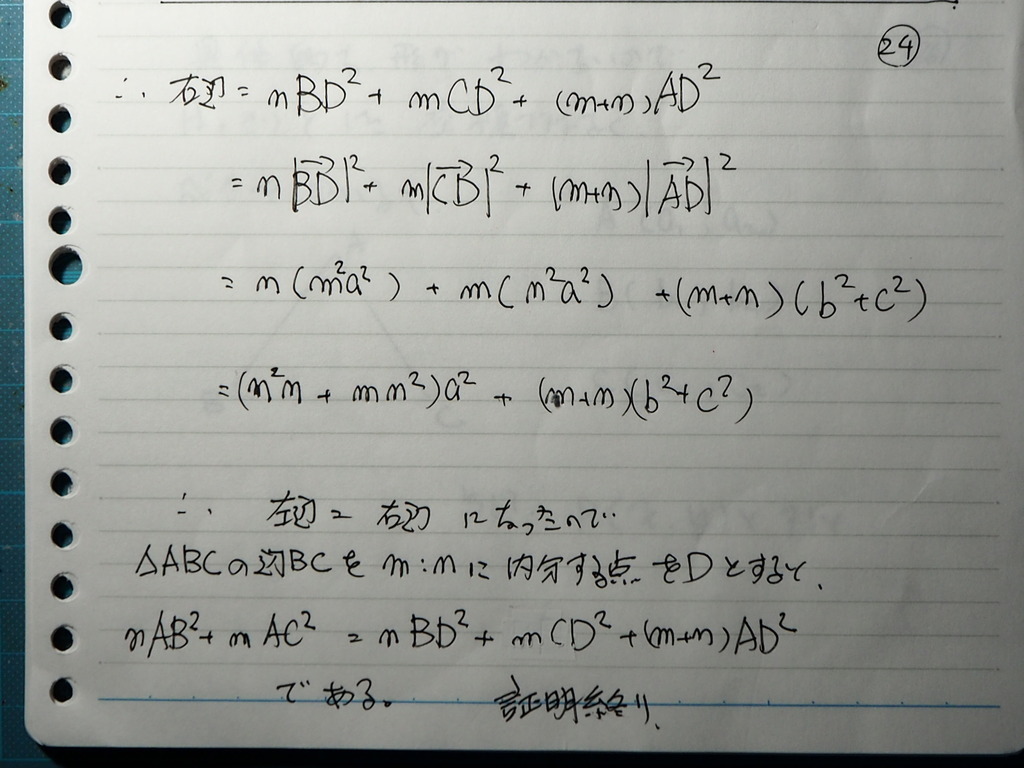 ㉔
∴ 右辺 = nBD² + mCD² + (m+n)AD²
= n|BD→|² + m|CB→|² + (m+n)|AD→|²
= n(m²a²) + m(n²a²) + (m+n)(b²+c²)
= (m²n + mn²)a² + (m+n)(b²+c²)
∴ 左辺 = 右辺 になったので
△ABCの辺BCを m:nに内分する点をDとすると、
nAB² + mAC² = nBD² + mCD² + (m+n)AD²
である。 証明終り、